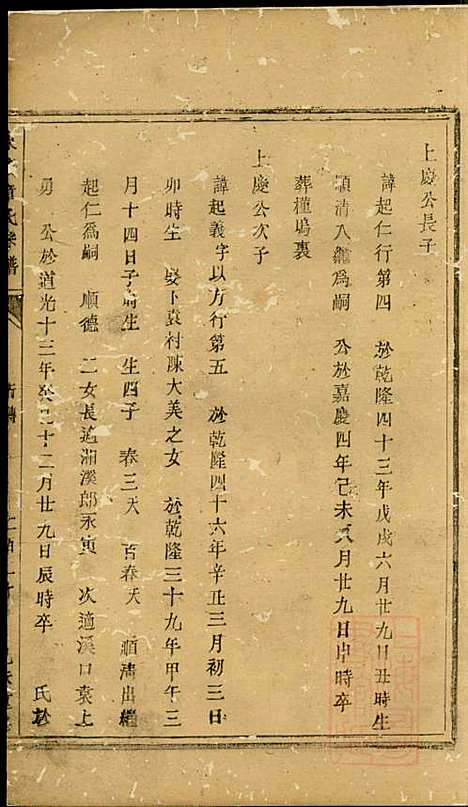 上慶公長子
諱起仁行第四　於乾隆四十三年戊戌六月廿九日丑時生
順清入繼為嗣　公於嘉慶四年己未八月廿九日丑時卒
葬楂塢裏
上慶公次子
諱起義字以方行第五　於乾隆四十六年辛丑三月初三日
卯時生　娶下袁村陳大美之女　於乾隆三十九年甲午三
月十四日子時生　生四子　春三夭　百春夭　順淸出繼
起仁為嗣　順德　二女長適湖溪郎永寅　次適溪口袁上
勇　公於道光十三年癸巳十二月廿九日辰時卒　氏於
氏宗譜